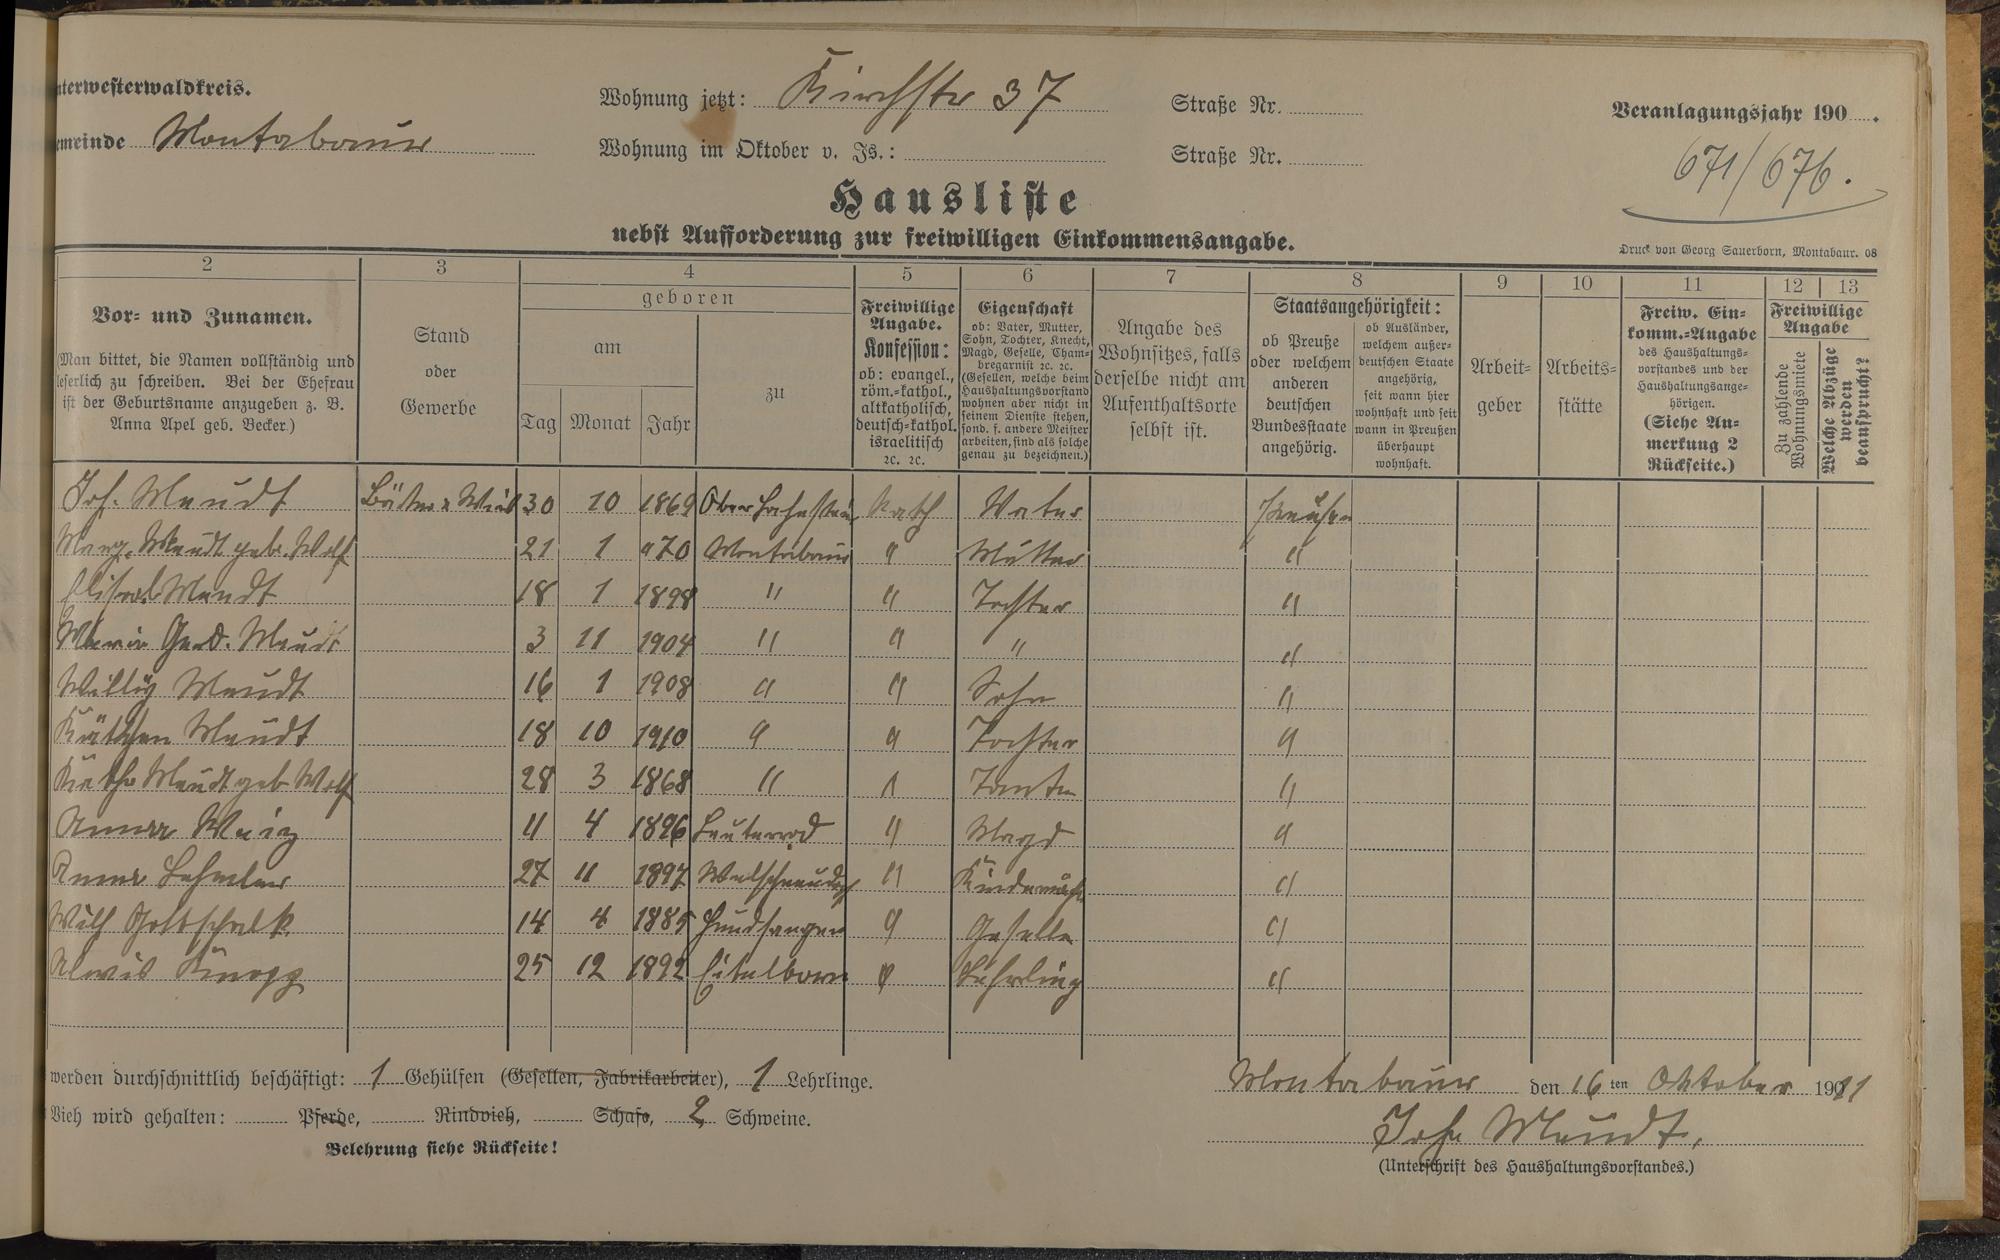 nterwesterwaldkreis.
Wohnung jetzt: Kirchstr 37 Straße Nr.
Veranlagungsjahr 190 .
emeinde Montabaur
Wohnung im Oktober v. Js.: Straße Nr.
671/676.
Hausliste
nebst Aufforderung zur freiwilligen Einkommensangabe.
Druck von Georg Sauerborn, Montabaur. 08
2 3 4 5 6 7 8 9 10 11 12 13
Vor- und Zunamen.
(Man bittet, die Namen vollständig und
leserlich zu schreiben. Bei der Ehefrau
ist der Geburtsname anzugeben z. B.
Anna Apel geb. Becker.)
Stand
oder
Gewerbe
geboren
am
Tag Monat Jahr
zu
Freiwillige
Angabe.
Konfession:
ob: evangel.,
röm.-kathol.,
altkatholisch,
deutsch-kathol.
israelitisch
2c. 2c.
Eigenschaft
ob: Vater, Mutter,
Sohn, Tochter, Knecht,
Magd, Geselle, Cham-
bregarnist 2c. 2c.
(Gesellen, welche beim
Haushaltungsvorstand
wohnen aber nicht in
seinem Dienste stehen,
sond. f. andere Meister
arbeiten, sind als solche
genau zu bezeichnen.)
Angabe des
Wohnsitzes, falls
derselbe nicht am
Aufenthaltsorte
selbst ist.
Staatsangehörigkeit:
ob Preuße
oder welchem
anderen
deutschen
Bundesstaate
angehörig.
ob Ausländer,
welchem außer-
deutschen Staate
angehörig,
seit wann hier
wohnhaft und seit
wann in Preußen
überhaupt
wohnhaft.
Arbeit-
geber
Arbeits-
stätte
Freiw. Ein-
komm.-Angabe
des Haushaltungs-
vorstandes und der
Haushaltungsange-
hörigen.
(Siehe An-
merkung 2
Rückseite.)
Freiwillige
Angabe
Zu zahlende
Wohnungsmiete
Welche Abzüge
werden
beansprucht?
Joh. Meudt 30 10 1869 Oberlahnstein Kath Vater Preußen
Marg. Meudt geb. Wolf 21 1 "70 Montabaur " Mutter "
Elisab Meudt 18 1 1898 " " Tochter "
Maria Gerd. Meudt 3 11 1904 " " " "
Willy Meudt 16 1 1908 " " Sohn "
Kätchen Meudt 18 10 1910 " " Tochter "
Kath Meudt geb Wolf 28 3 1868 " " Tante "
Anna 11 4 1896 Leuterod " Magd "
Anna 27 11 1897 Welschneudorf " "
Wilh Gottschalk 14 4 1885 Hundsangen " Geselle "
Alois Knopp 25 12 1892 Eitelborn " Lehrling "
werden durchschnittlich beschäftigt: 1 Gehülfen (Gesellen, Fabrikarbeiter), 1 Lehrlinge.
Vieh wird gehalten: Pferde, Rindvieh, Schafe, 2 Schweine.
Belehrung siehe Rückseite!
Montabaur den 16 ten Oktober 1911
Joh Meudt,
(Unterschrift des Haushaltungsvorstandes.)